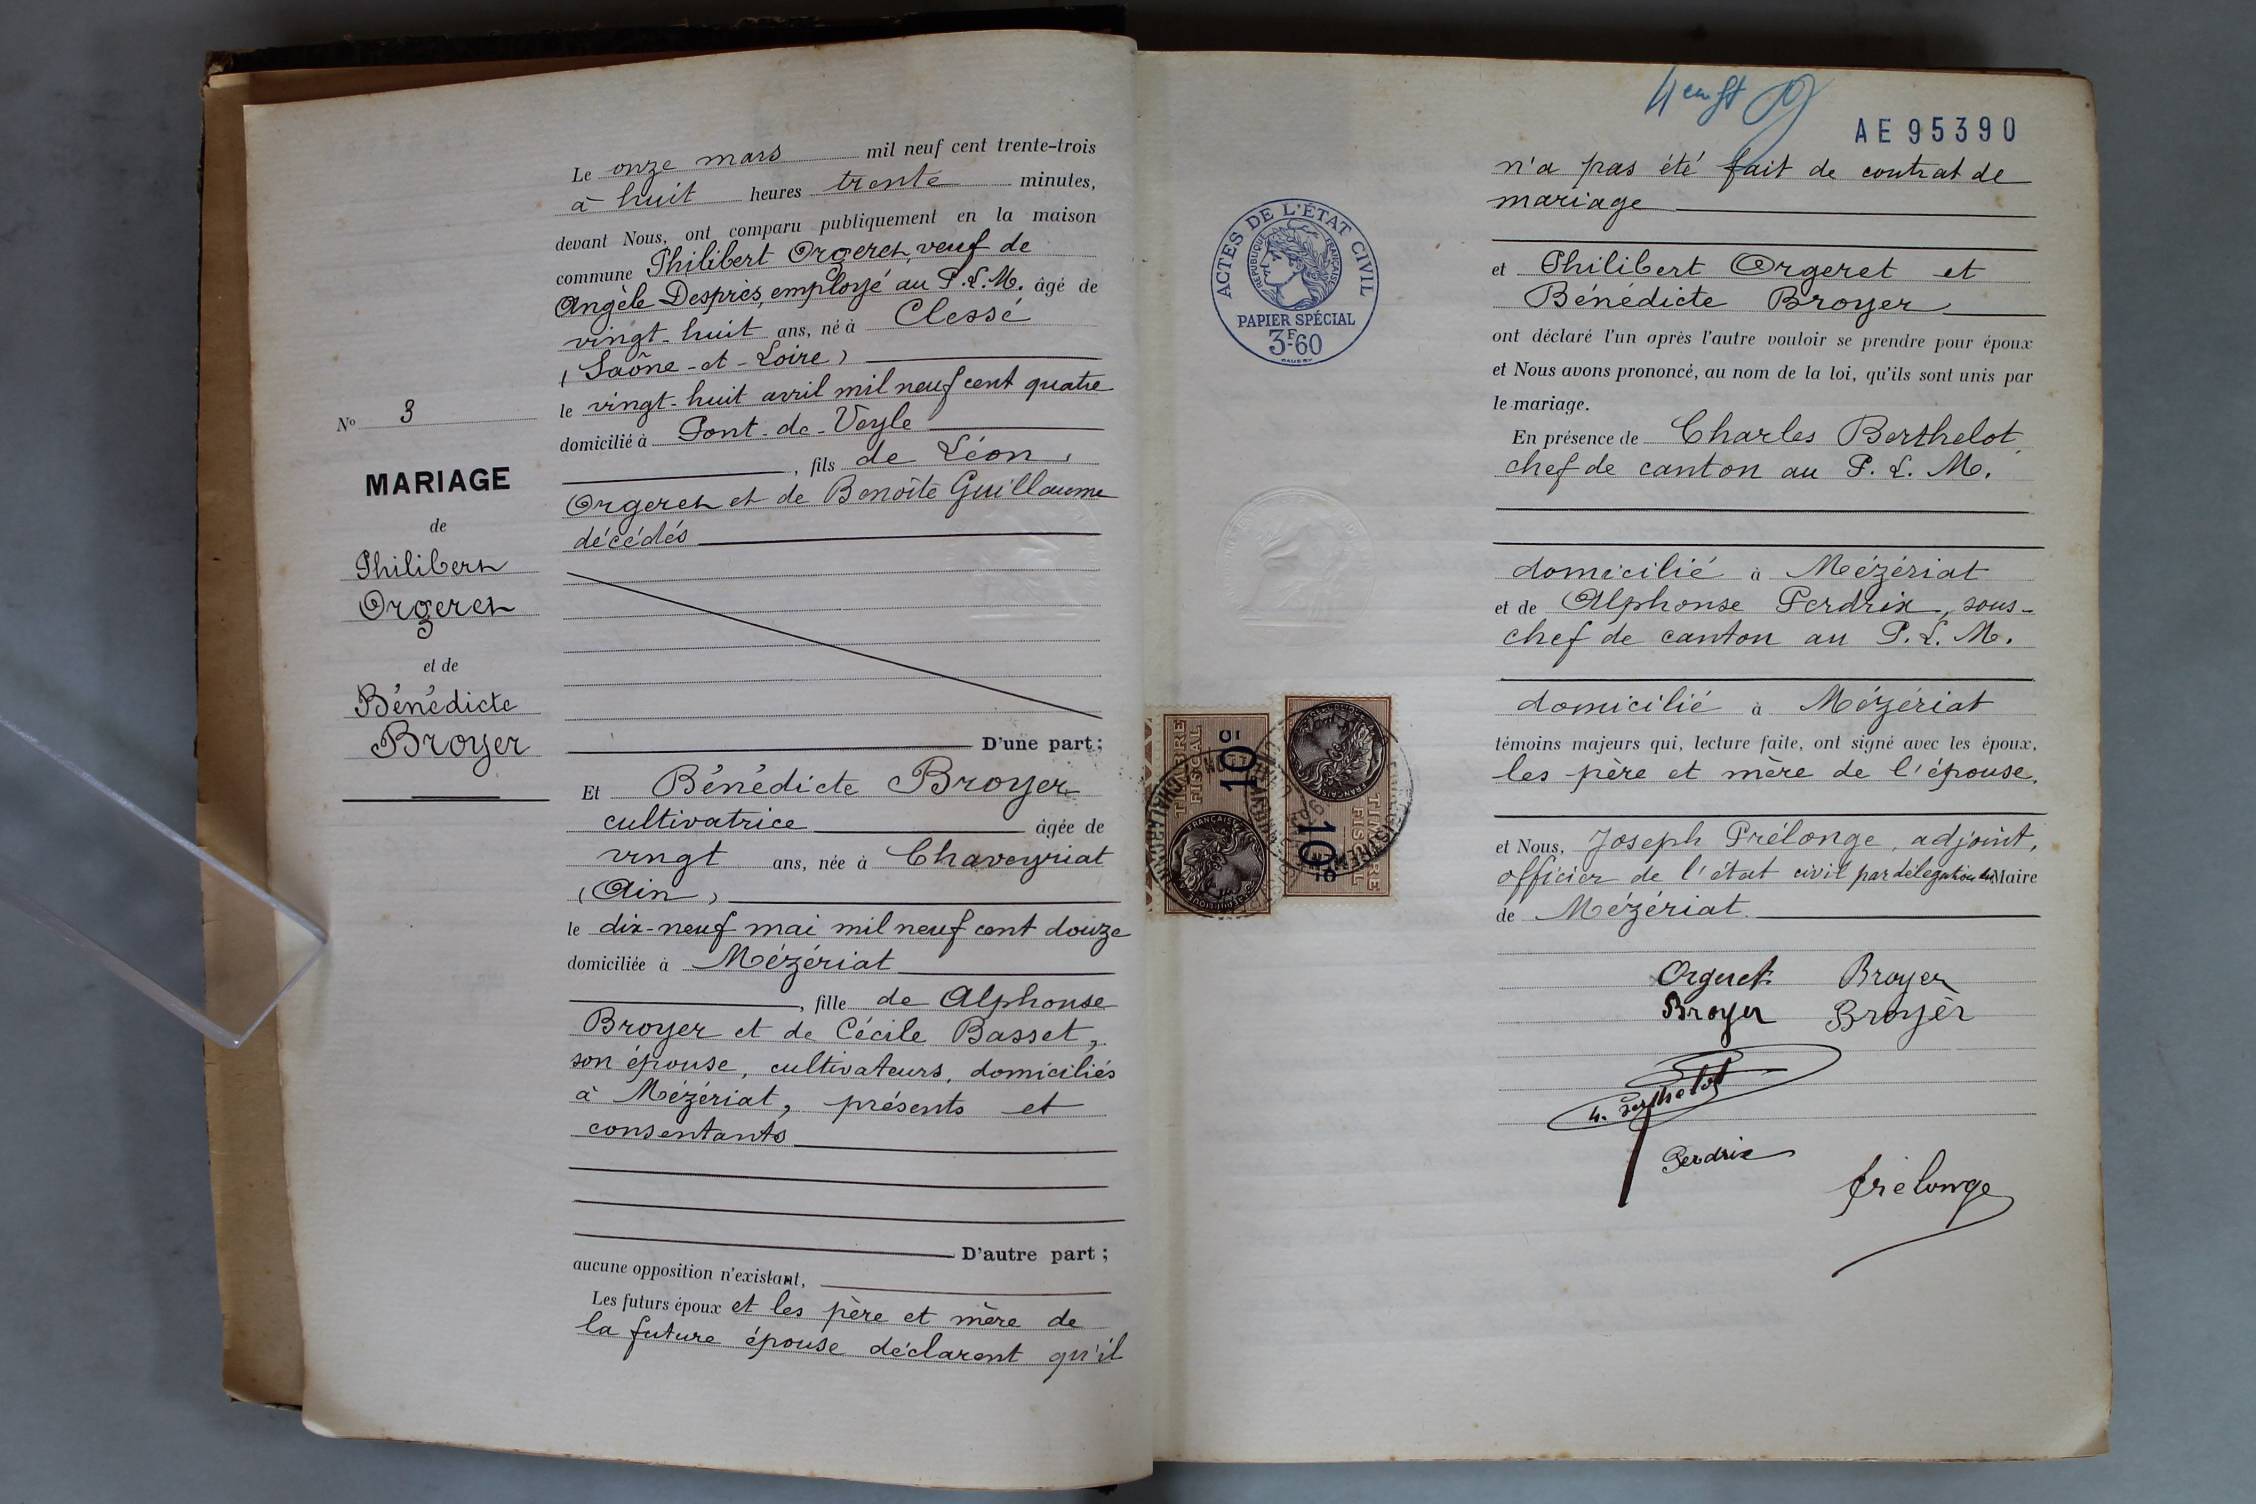 Le onze mars mil neuf cent trente-trois
à huit heures trente minutes,
devant Nous, ont comparu publiquement en la maison
commune Philibert Orgeret, veuf de
Angèle Desprès, employé au P.L.M. âgé de
vingt-huit ans, né à Clessé
(Saône-et-Loire)
le vingt-huit avril mil neuf cent quatre
domicilié à Pont-de-Veyle
, fils de Léon
Orgeret et de Benoîte Guillaume
décédés
D'une part;
No 3
MARIAGE
de
Philibert
Orgeret
et de
Bénédicte
Broyer
Et Bénédicte Broyer
cultivatrice âgée de
vingt ans, née à Chaveyriat
(Ain)
le dix-neuf mai mil neuf cent douze
domiciliée à Mézériat
, fille de Alphonse
Broyer et de Cécile Basset,
son épouse, cultivateurs, domiciliés
à Mézériat, présents et
consentants
D'autre part;
aucune opposition n'existant,
Les futurs époux et les père et mère de
la future épouse déclarent qu'il
AE 95390
n'a pas été fait de contrat de
mariage
et Philibert Orgeret et
Bénédicte Broyer
ont déclaré l'un après l'autre vouloir se prendre pour époux
et Nous avons prononcé, au nom de la loi, qu'ils sont unis par
le mariage.
En présence de Charles Berthelot,
chef de canton au P.L.M.
domicilié à Mézériat
et de Alphonse Perdrix, sous-
chef de canton au P.L.M.
domicilié à Mézériat
témoins majeurs qui, lecture faite, ont signé avec les époux,
les père et mère de l'épouse,
et Nous, Joseph Prélonge, adjoint,
officier de l'état civil par délégation du Maire
de Mézériat.
Orgeret Broyer
Broyer Broyer
Berthelot
Perdrix
Prélonge
ACTES DE L'ÉTAT CIVIL
RÉPUBLIQUE FRANÇAISE
PAPIER SPÉCIAL
3F60
TIMBRE
FISCAL
10c
TIMBRE
FISCAL
10c